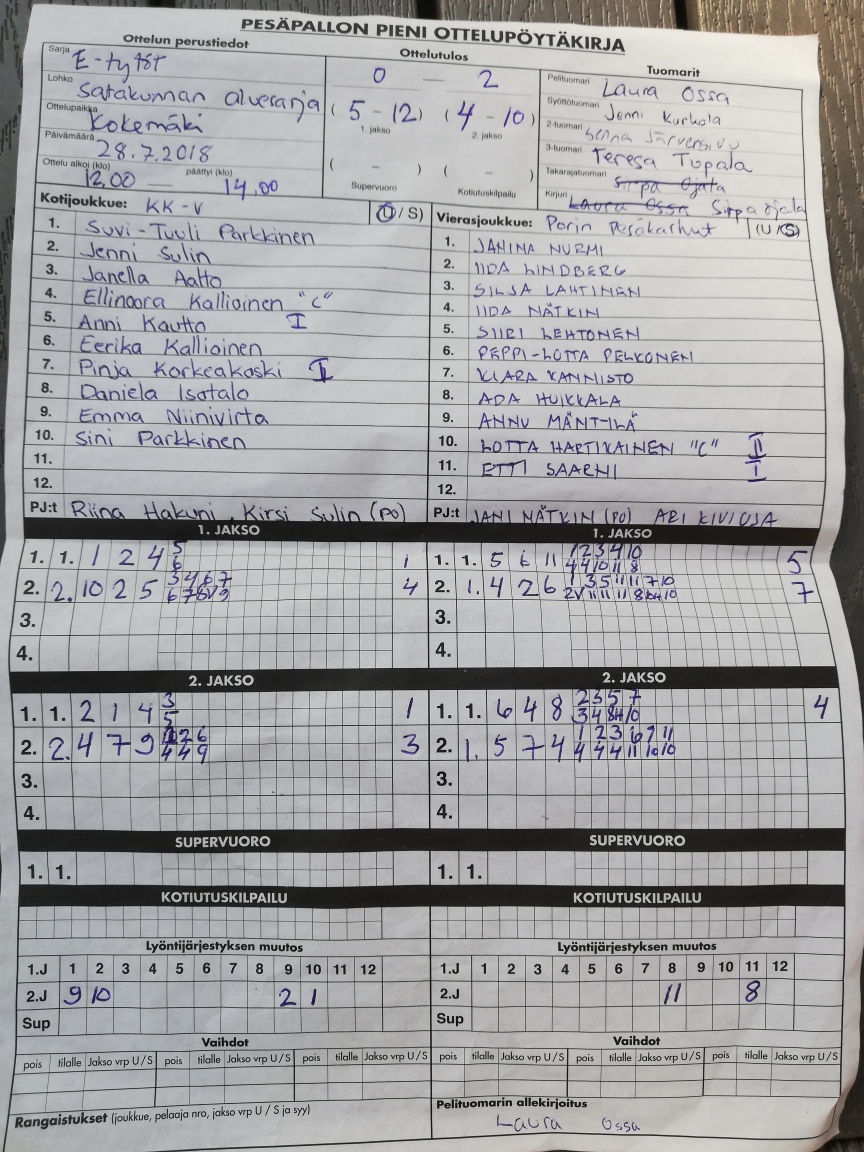 PESÄPALLON PIENI OTTELUPÖYTÄKIRJA
Ottelun perustiedot
Sarja E-tytöt
Lohko Satakunnan aluesarja
Ottelupaikka Kokemäki
Päivämäärä 28.7.2018
Ottelu alkoi (klo) 12.00 — päättyi (klo) 14.00
Ottelutulos
0 — 2
( 5 - 12 ) ( 4 - 10 )
1. jakso 2. jakso
( - ) ( - )
Supervuoro Kotiutuskilpailu
Tuomarit
Pelituomari Laura Ossa
Syöttötuomari Jenni Kurkola
2-tuomari Senna Järvensivu
3-tuomari Teresa Tupala
Takarajatuomari Sirpa Ojala
Kirjuri Laura Ossa Sirpa Ojala
Kotijoukkue: KK-V (U / S)
1. Suvi-Tuuli Parkkinen
2. Jenni Sulin
3. Janella Aalto
4. Ellinoora Kallioinen "C"
5. Anni Kautto I
6. Eerika Kallioinen
7. Pinja Korkeakoski II
8. Daniela Isotalo
9. Emma Niinivirta
10. Sini Parkkinen
11.
12.
PJ:t Riina Hakuni, Kirsi Sulin (PO)
Vierasjoukkue: Porin Pesäkarhut (U / S)
1. JANINA NURMI
2. IIDA LINDBERG
3. SILJA LAHTINEN
4. IIDA NÄTKIN
5. SIIRI LEHTONEN
6. PEPPI-LOTTA PELKONEN
7. KIARA KANNISTO
8. ADA HUIKKALA
9. ANNU MÄNTILÄ
10. LOTTA HARTIKAINEN "C" II
11. ETTI SAARNI I
12.
PJ:t JANI NÄTKIN (PO) ARI KIVIOJA
1. JAKSO
1. 1. 1 2 4 5 1
6
2. 2. 10 2 5 3 4 6 7 4
3.
4.
1. JAKSO
1. 1. 5 6 11 1 2 3 4 10 5
4 4 10 11 8
2. 1. 4 2 6 1 3 5 11 11 7 10 7
3.
4.
2. JAKSO
1. 1. 2 1 4 3 1
5
2. 2. 4 7 9 2 6 3
4 4 9
3.
4.
2. JAKSO
1. 1. 6 4 8 2 3 5 7 4
2. 1. 5 7 4 1 2 3 6 9 11
4 4 4 11 10 10
3.
4.
SUPERVUORO
1. 1.
SUPERVUORO
1. 1.
KOTIUTUSKILPAILU
KOTIUTUSKILPAILU
Lyöntijärjestyksen muutos
1.J 1 2 3 4 5 6 7 8 9 10 11 12
2.J 9 10 2 1
Sup
Lyöntijärjestyksen muutos
1.J 1 2 3 4 5 6 7 8 9 10 11 12
2.J 11 8
Sup
Vaihdot
pois tilalle Jakso vrp U / S pois tilalle Jakso vrp U / S pois tilalle Jakso vrp U / S
Vaihdot
pois tilalle Jakso vrp U / S pois tilalle Jakso vrp U / S pois tilalle Jakso vrp U / S
Rangaistukset (joukkue, pelaaja nro, jakso vrp U / S ja syy)
Pelituomarin allekirjoitus
Laura Ossa